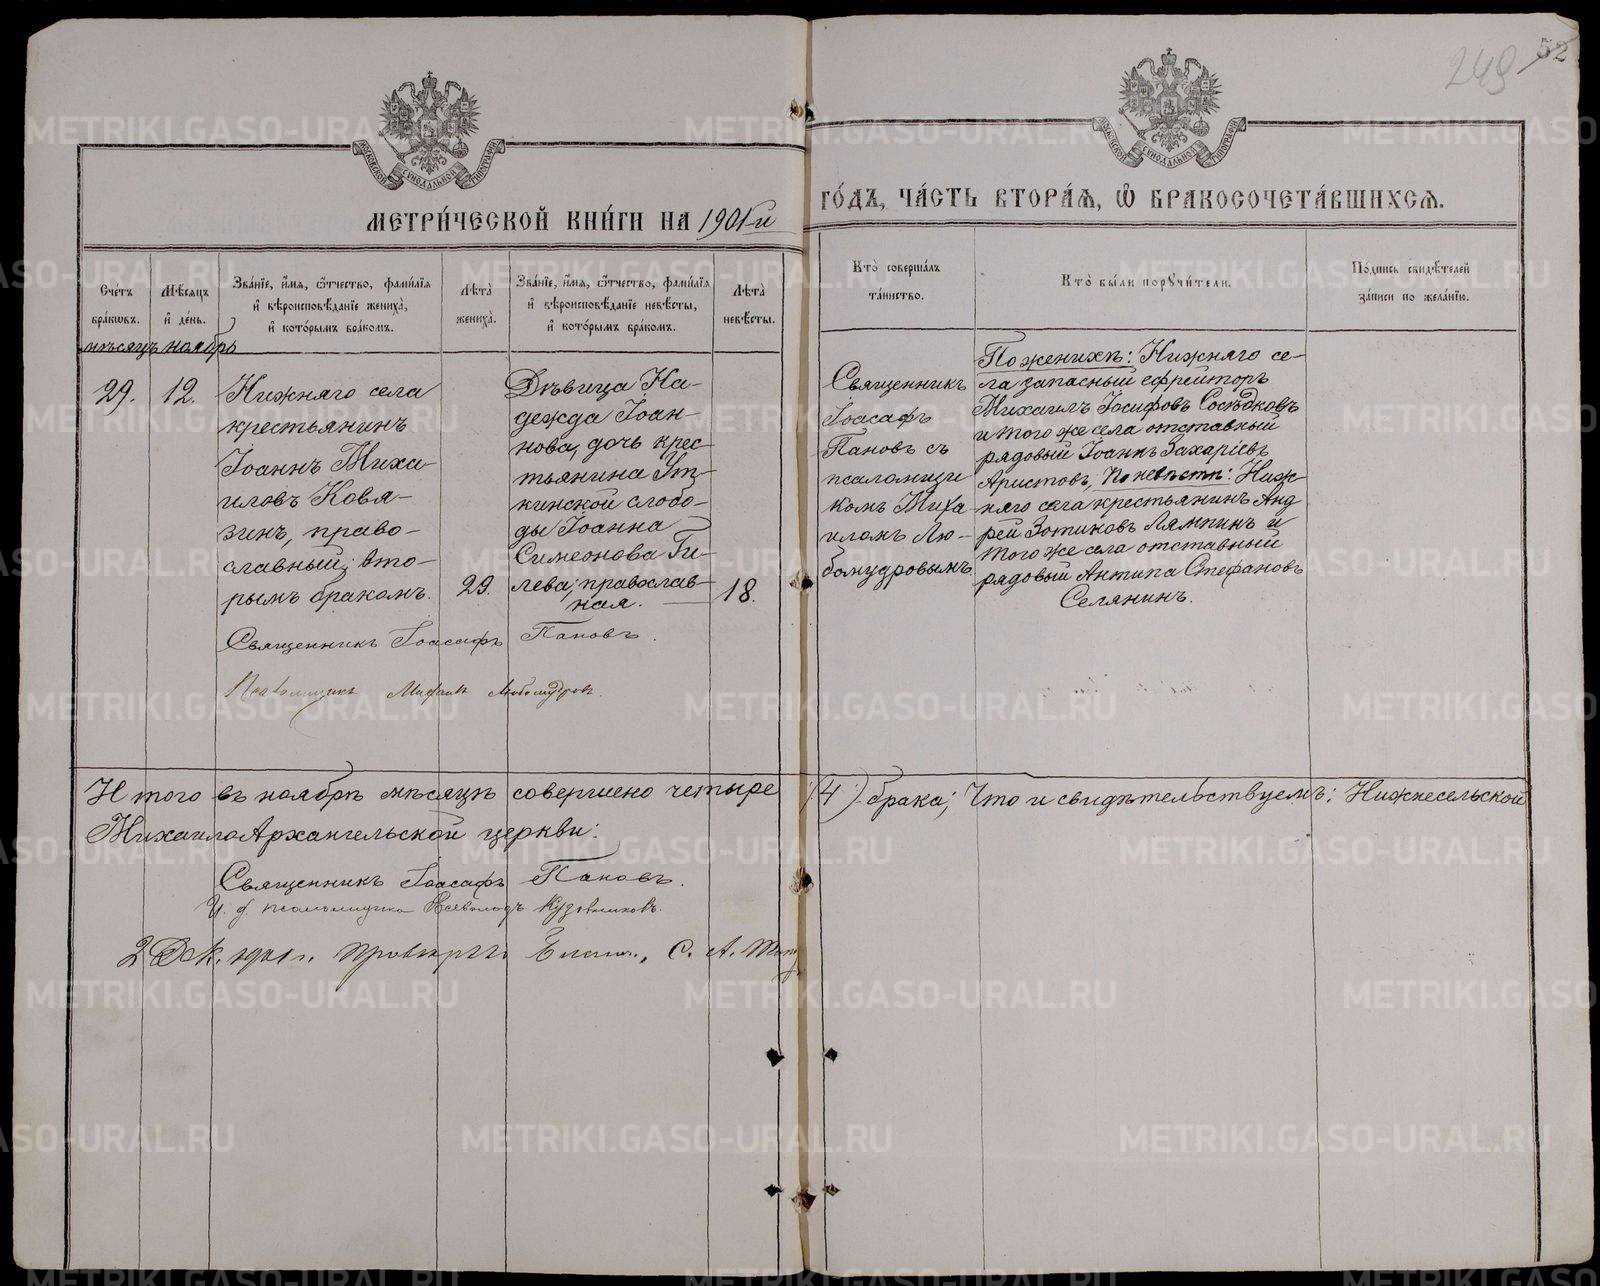 249 52
МОСКОВСКОЙ СѴНОДАЛЬНОЙ ТИПОГРАФІИ
МОСКОВСКОЙ СѴНОДАЛЬНОЙ ТИПОГРАФІИ
МЕТРИ́ЧЕСКОЙ КНИ́ГИ НА 1901й
ГО́ДЪ, ЧА́СТЬ ВТОРА́Ѧ, Ѽ БРАКОСОЧЕТА́ВШИХСѦ.
Сче́тъ
бра́кѡвъ.
Мѣ́сяцъ
и҆ де́нь.
Зва́нїе, и҆́мя, ѻ҆́тчество, фами́лїя
и҆ вѣроисповѣ́данїе жениха̀,
и҆ кото́рымъ бра́комъ.
Лѣ́та
жениха̀.
Зва́нїе, и҆́мя, ѻ҆́тчество, фами́лїя
и҆ вѣроисповѣ́данїе невѣ́сты,
и҆ кото́рымъ бра́комъ.
Лѣ́та
невѣ́сты.
Кто̀ соверша́лъ
та́инство.
Кто̀ бы́ли порꙋчи́тели.
По́дпись свидѣ́телей
за́писи по жела́нїю.
мѣсяцъ ноябрь
29.
12.
Нижняго села
крестьянинъ
Іоаннъ Миха-
иловъ Ковя-
зинъ, право-
славный; вто-
рымъ бракомъ.
29.
Дѣвица На-
дежда Іоан-
нова, дочь крес-
тьянина Ут-
кинской слобо-
ды Іоанна
Симеонова Ги-
лева; православ-
ная.
18.
Священникъ
Іоасафъ
Пановъ съ
псаломщи
комъ Миха
иломъ Лю-
бомудровымъ
По женихѣ: Нижняго се-
ла запасный ефрейторъ
Михаилъ Іосифовъ Сосѣдковъ
и того же села отставный
рядовый Іоаннъ Захаріевъ
Аристовъ; По невѣстѣ: Ниж-
няго села крестьянинъ Анд
рей Зотиковъ Лямпинъ и
того же села отставный
рядовый Антипа Стефановъ
Селянинъ.
Священникъ Іоасафъ Пановъ.
Псаломщикъ Михаилъ Любомудровъ.
Итого въ ноябрѣ мѣсяцѣ совершено четыре (4) брака; Что и свидѣтельствуемъ: Нижнесельской
Михаило Архангельской церкви:
Священникъ Іоасафъ Пановъ.
И. д. псаломщика Всеволодъ Кузовниковъ.
2 Дек. 1901 г. С. А.
METRIKI.GASO-URAL.RU